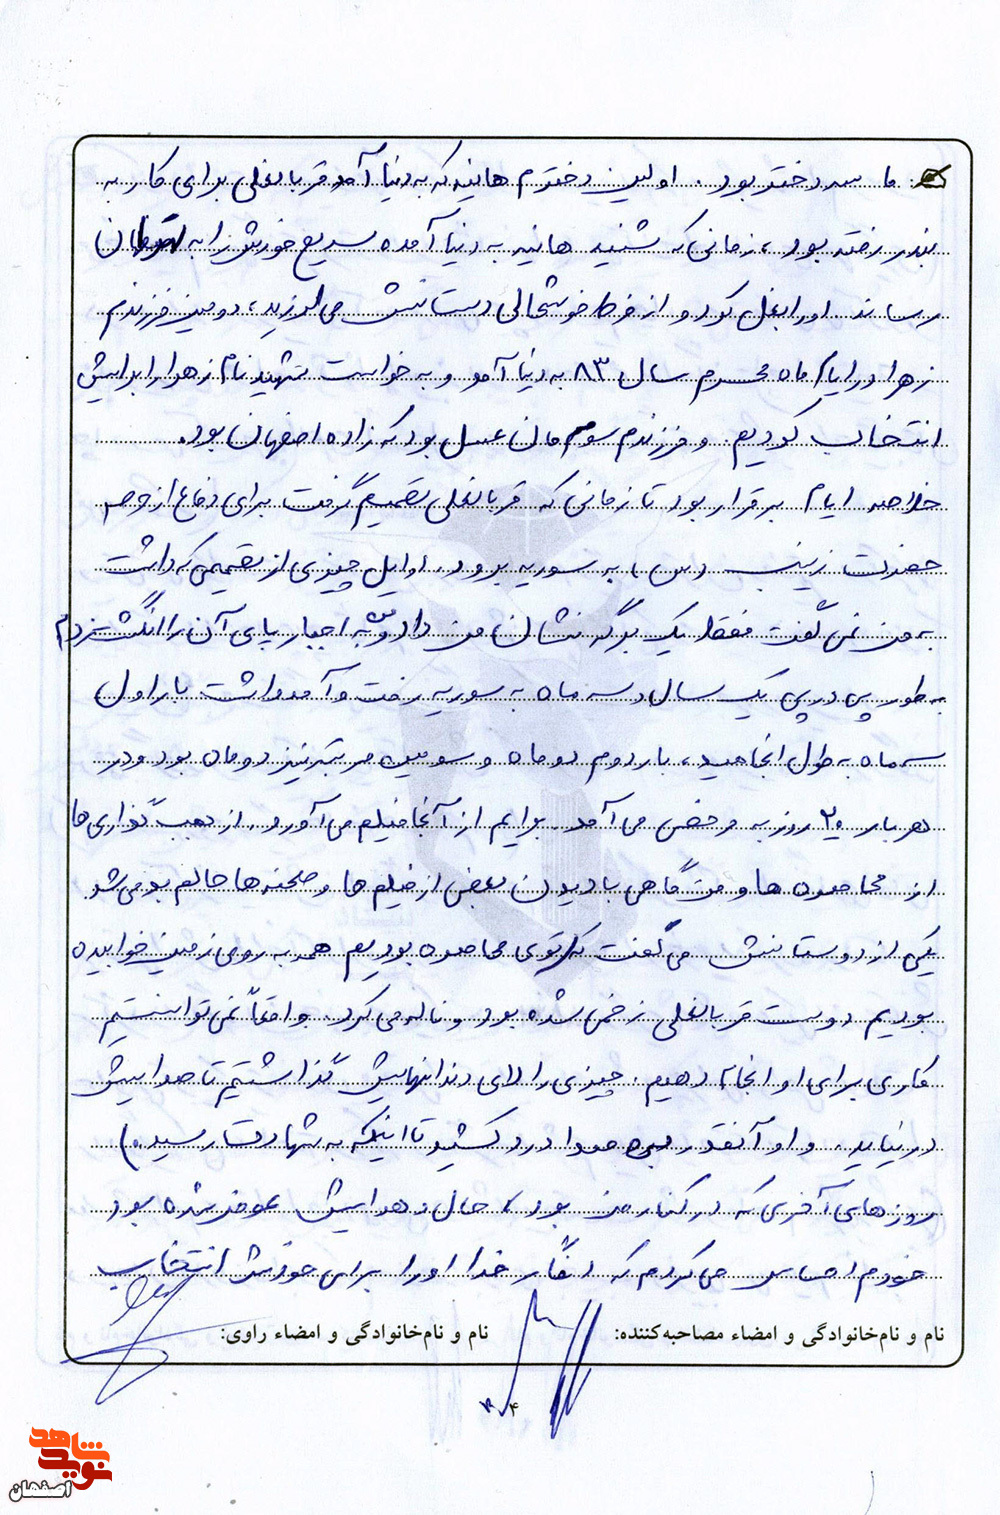 ما سه دختر بود. اولین دخترم هانیه که به دنیا آمد قربانعلی برای کار به
بندر رفته بود، زمانی که شنید هانیه به دنیا آمده سریع خودش را به اصفهان
رساند او را بغل کرد و از فرط خوشحالی دستانش می‌لرزید، دومین فرزندم
زهرا در ایام ماه محرم سال ۸۳ به دنیا آمد و به خواست شهید نام زهرا را برایش
انتخاب کردیم. و فرزندم سوم مان عسل بود که زاده اصفهان بود.
خلاصه ایام برقرار بود تا زمانی که قربانعلی تصمیم گرفت برای دفاع از حرم
حضرت زینب (س) به سوریه برود. اوایل چیزی از تصمیمی که داشت
به من نمی گفت فقط یک برگه نشان من داد و به اجبار پای آن را انگشت زدم
به طور پی در پی یک سال و سه ماه به سوریه رفت و آمد داشت بار اول
سه ماه به طول انجامید، بار دوم دو ماه و سومین مرتبه نیز دو ماه بود و در
هر بار ۲۰ روز به مرخصی می آمد. برایم از آنجا فیلم می آورد. از خمپاره‌ها
از محاصره ها و من گاهی با دیدن بعضی از فیلم ها و صحنه ها حالم بد می شد
یکی از دوستانش می گفت که توی محاصره بودیم همه به روی زمین خوابیده
بودیم دوست قربانعلی زخمی شده بود و ناله می کرد. واقعاً نمی توانستیم
کاری برای او انجام دهیم. چیزی را لای دندانهایش گذاشتیم تا صدایش
در نیاید. و او آنقدر بی صدا درد کشید تا اینکه به شهادت رسید.)
روزهای آخری که در کنار من بود، حال و هوایش عوض شده بود
خودم احساس می کردم که انگار خدا او را برای خودش انتخاب
نام و نام‌خانوادگی و امضاء مصاحبه‌کننده: نام و نام‌خانوادگی و امضاء راوی:
۴
شاهد
نوید
اصفهان